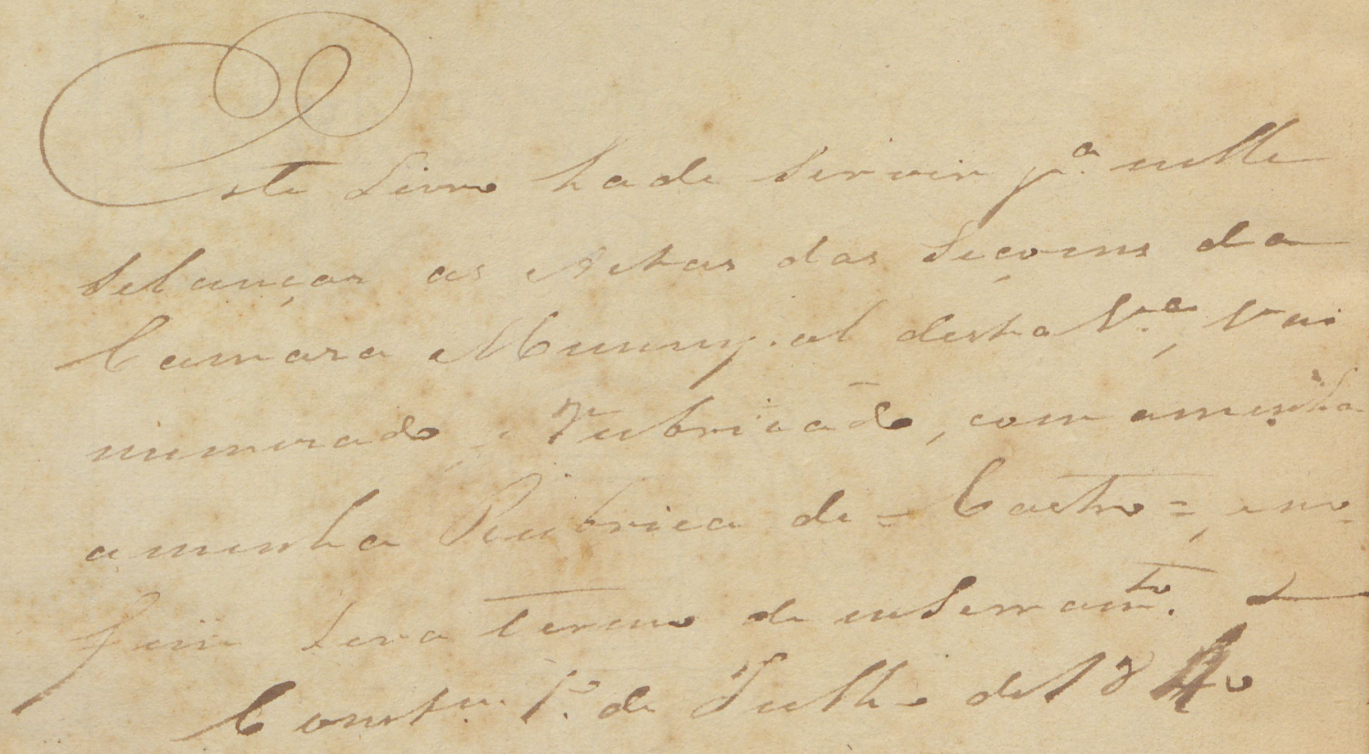 Este Livro hade Servir p.ª nelle
Selançar as Actas das Seçoens da
Camara Municipal desta V.ª, vai
numerado, e Rubricado, com aminha
aminha Rubrica de = Castro =, eno
fim Leva termo de enSerram.to.
Const.m 1.º de Julho de 1840